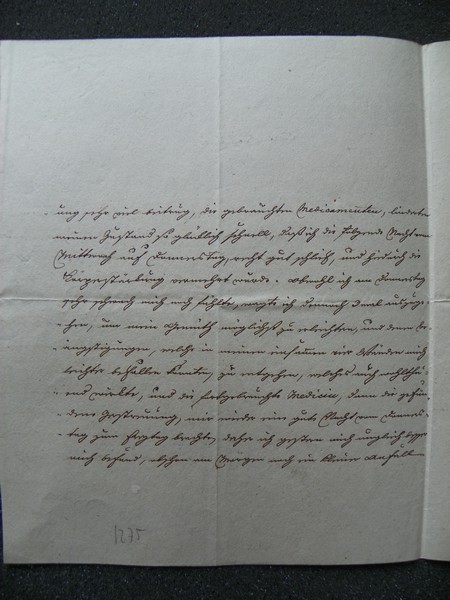 ung sehr viel beitrug, die gebrauchten Medicamenten, linderten
meinen Zustand so glücklich schnell, daß ich die folgende Nacht vom
Mittwoch auf Donnerstag, recht gut schlief, und hiedurch die
vermehrt wurde. Obwohl ich am Donnerstag
sehr schwach mich noch fühlte, wagte ich dennoch
-hen, um mein Gemüth möglichst zu erleichtern, und denen Be-
ängstigungen, welche in meinen einsamen vier Wänden mich
leichter befallen könnten, zu entgehen, welches auch wohlthu-
end wirkte, und die fortgebrauchte Medicin, dann die gefun-
dene Zerstreuung, mir wieder eine gute Nacht vom Donners-
tag zum Freytag brachte, daher ich gestern mich ungleich besser
mich befand, obschon am Morgen noch ein kleiner Anfall
1275